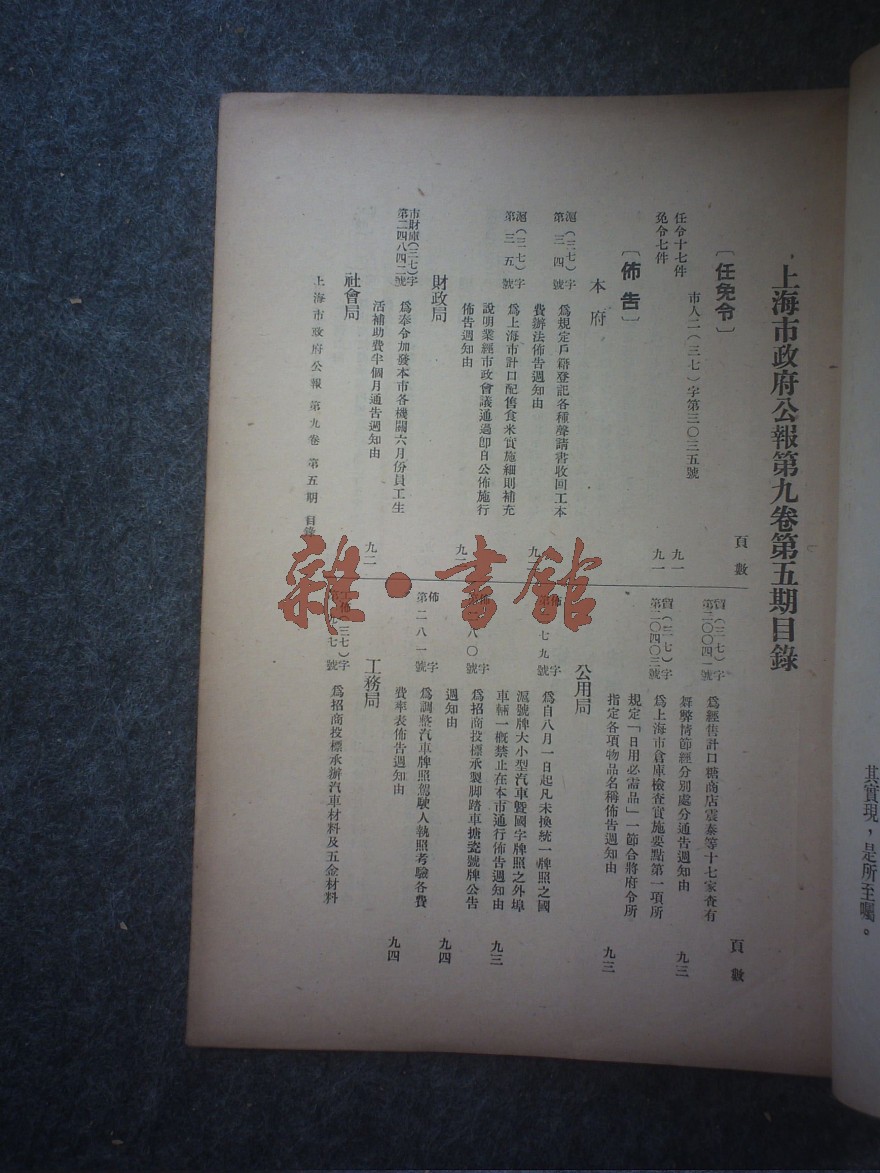 上海市政府公報第九卷第五期目錄
頁數
〔任免令〕
市人二(三七)字第三〇三五號
任令十七件 九一
免令七件 九一
〔佈告〕
本府
滬(三七)字第三四號 為規定戶籍登記各種聲請書收回工本
費辦法佈告週知由
滬(三七)字第三五號 為上海市計口配售食米實施細則補充
說明業經市政會議通過卽日公佈施行
佈告週知由
財政局
市財庫(三七)字第二四八四二號 為奉令加發本市各機關六月份員工生
活補助費半個月通告週知由 九二
社會局
上海市政府公報 第九卷 第五期 目錄
頁數
貿(三七)字第二〇〇四一號 為經售計口糖商店震泰等十七家查有
舞弊情節經分別處分通告週知由 九三
貿(三七)字第二〇四〇三號 為上海市倉庫檢查實施要點第一項所
規定「日用必需品」一節合將府令所
指定各項物品名稱佈告週知由 九三
公用局
佈字第 七九號 為自八月一日起凡未換統一牌照之國
滬號牌大小型汽車暨國字牌照之外埠
車輛一概禁止在本市通行佈告週知由 九三
佈字 八〇號 為招商投標承製脚踏車搪瓷號牌公告
週知由 九四
佈字第二八一號 為調整汽車牌照駕駛人執照考驗各費
費率表佈告週知由 九四
工務局
佈(三七)字 七號 為招商投標承辦汽車材料及五金材料
其實現,是所至囑。
雜·書館